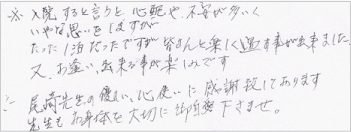 ※ 入院すると言うと心配や、不安が多いく
いやな思いをしますが
たった1泊だったですが皆さんと楽しく過す事が出来ました
又、お逢い出来る事が楽しみです
∴ 尾崎先生の優しい、心使いに感謝致しております
先生もお身体を大切に御自愛下さませ。